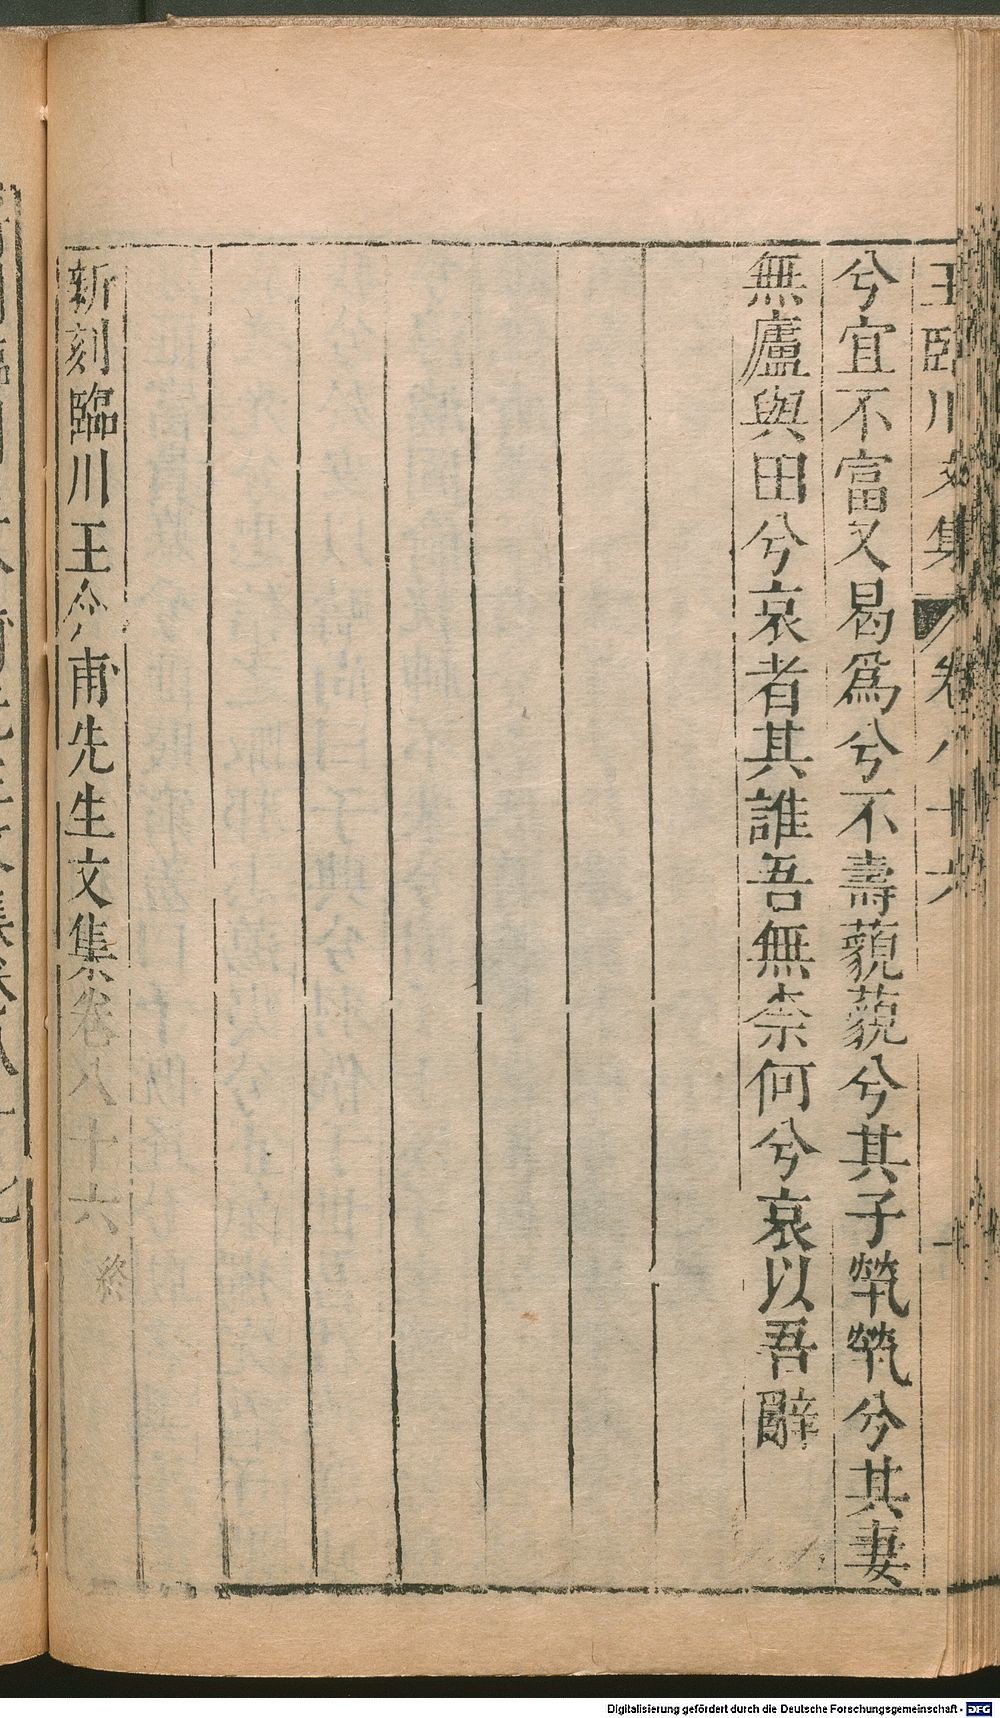 王臨川文集 卷八十六
兮宜不富又曷爲兮不壽藐藐兮其子煢煢兮其妻
無廬與田兮哀者其誰吾無柰何兮哀以吾辭
新刻臨川王介甫先生文集卷八十六 終
Digitalisierung gefördert durch die Deutsche Forschungsgemeinschaft - DFG